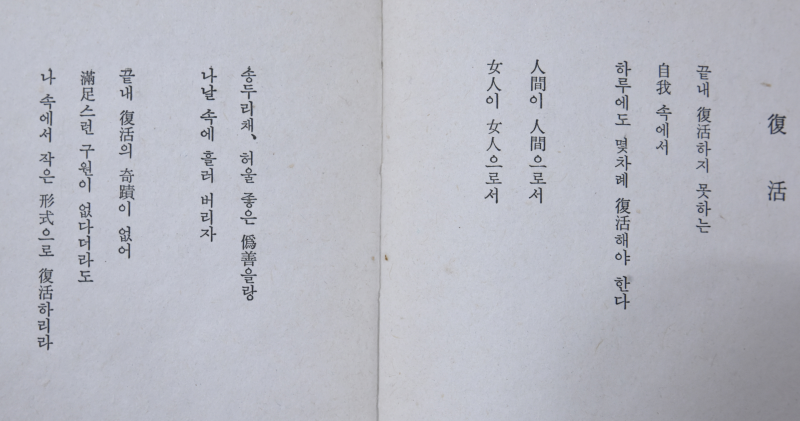 復活
끝내 復活하지 못하는
自我 속에서
하루에도 몇차례 復活해야 한다
人間이 人間으로서
女人이 女人으로서
송두리채, 허울 좋은 僞善을랑
나날 속에 흘러 버리자
끝내 復活의 奇蹟이 없어
滿足스런 구원이 없다더라도
나 속에서 작은 形式으로 復活하리라